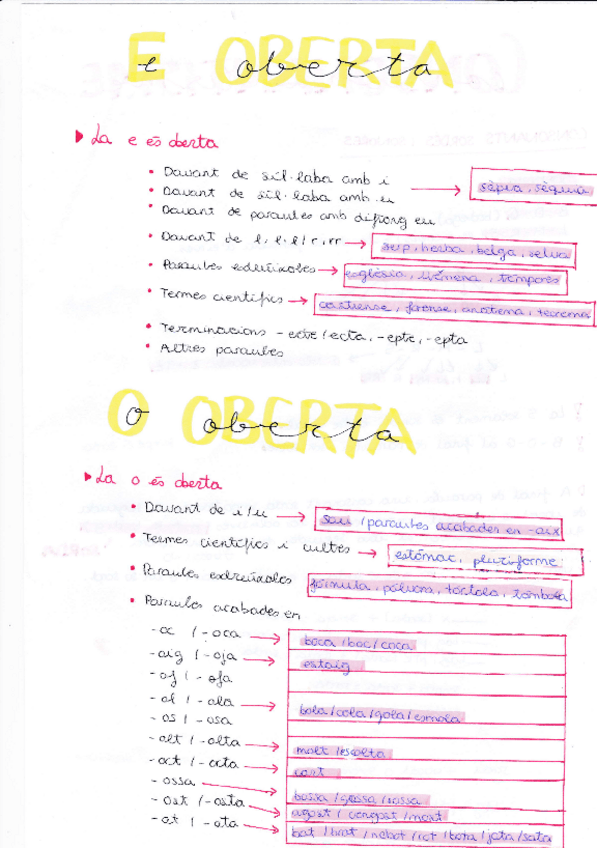 E OBERTA
e oberta
La e és oberta
• Davant de síl·laba amb i
• Davant de síl·laba amb u → sèpia, sèquia
• Davant de paraules amb diftong eu
• Davant de l, l·l / r, rr → serp, herba, belga, selva
• Paraules esdrúixoles → església,, témpores
• Termes científics → , forense, anatema, teorema
• Terminacions -ecte / ecta, -epte, -epta
• Altres paraules
O OBERTA
o oberta
La o és oberta
• Davant de i / u → sou / paraules acabades en
• Termes científics i cultes → estómac, pluriforme
• Paraules esdrúixoles fórmula, pólvora, tómbola
• Paraules acabades en
-oc / -oca → boca / boc / coca
-oig / -oja →
-of / -ofa
-ol / -ola → bola / cola / gola /
-os / -osa
-olt / -olta → molt / escolta
→ cort
-ossa → bossa / gossa / rossa
-ost / -osta → agost / congost / most
-ot / -ota → bot / brot / nebot / rot / bota / jota / sota